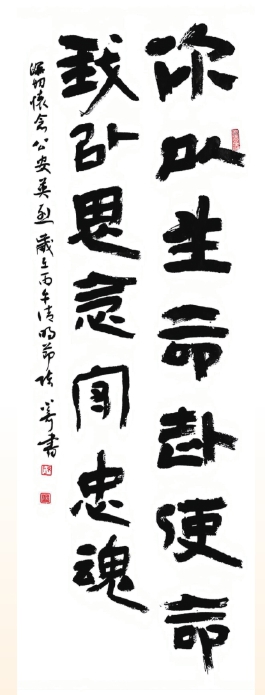 你以生命赴使命
我以思念守忠魂
深切怀念公安英烈 岁在丙午清明节 书